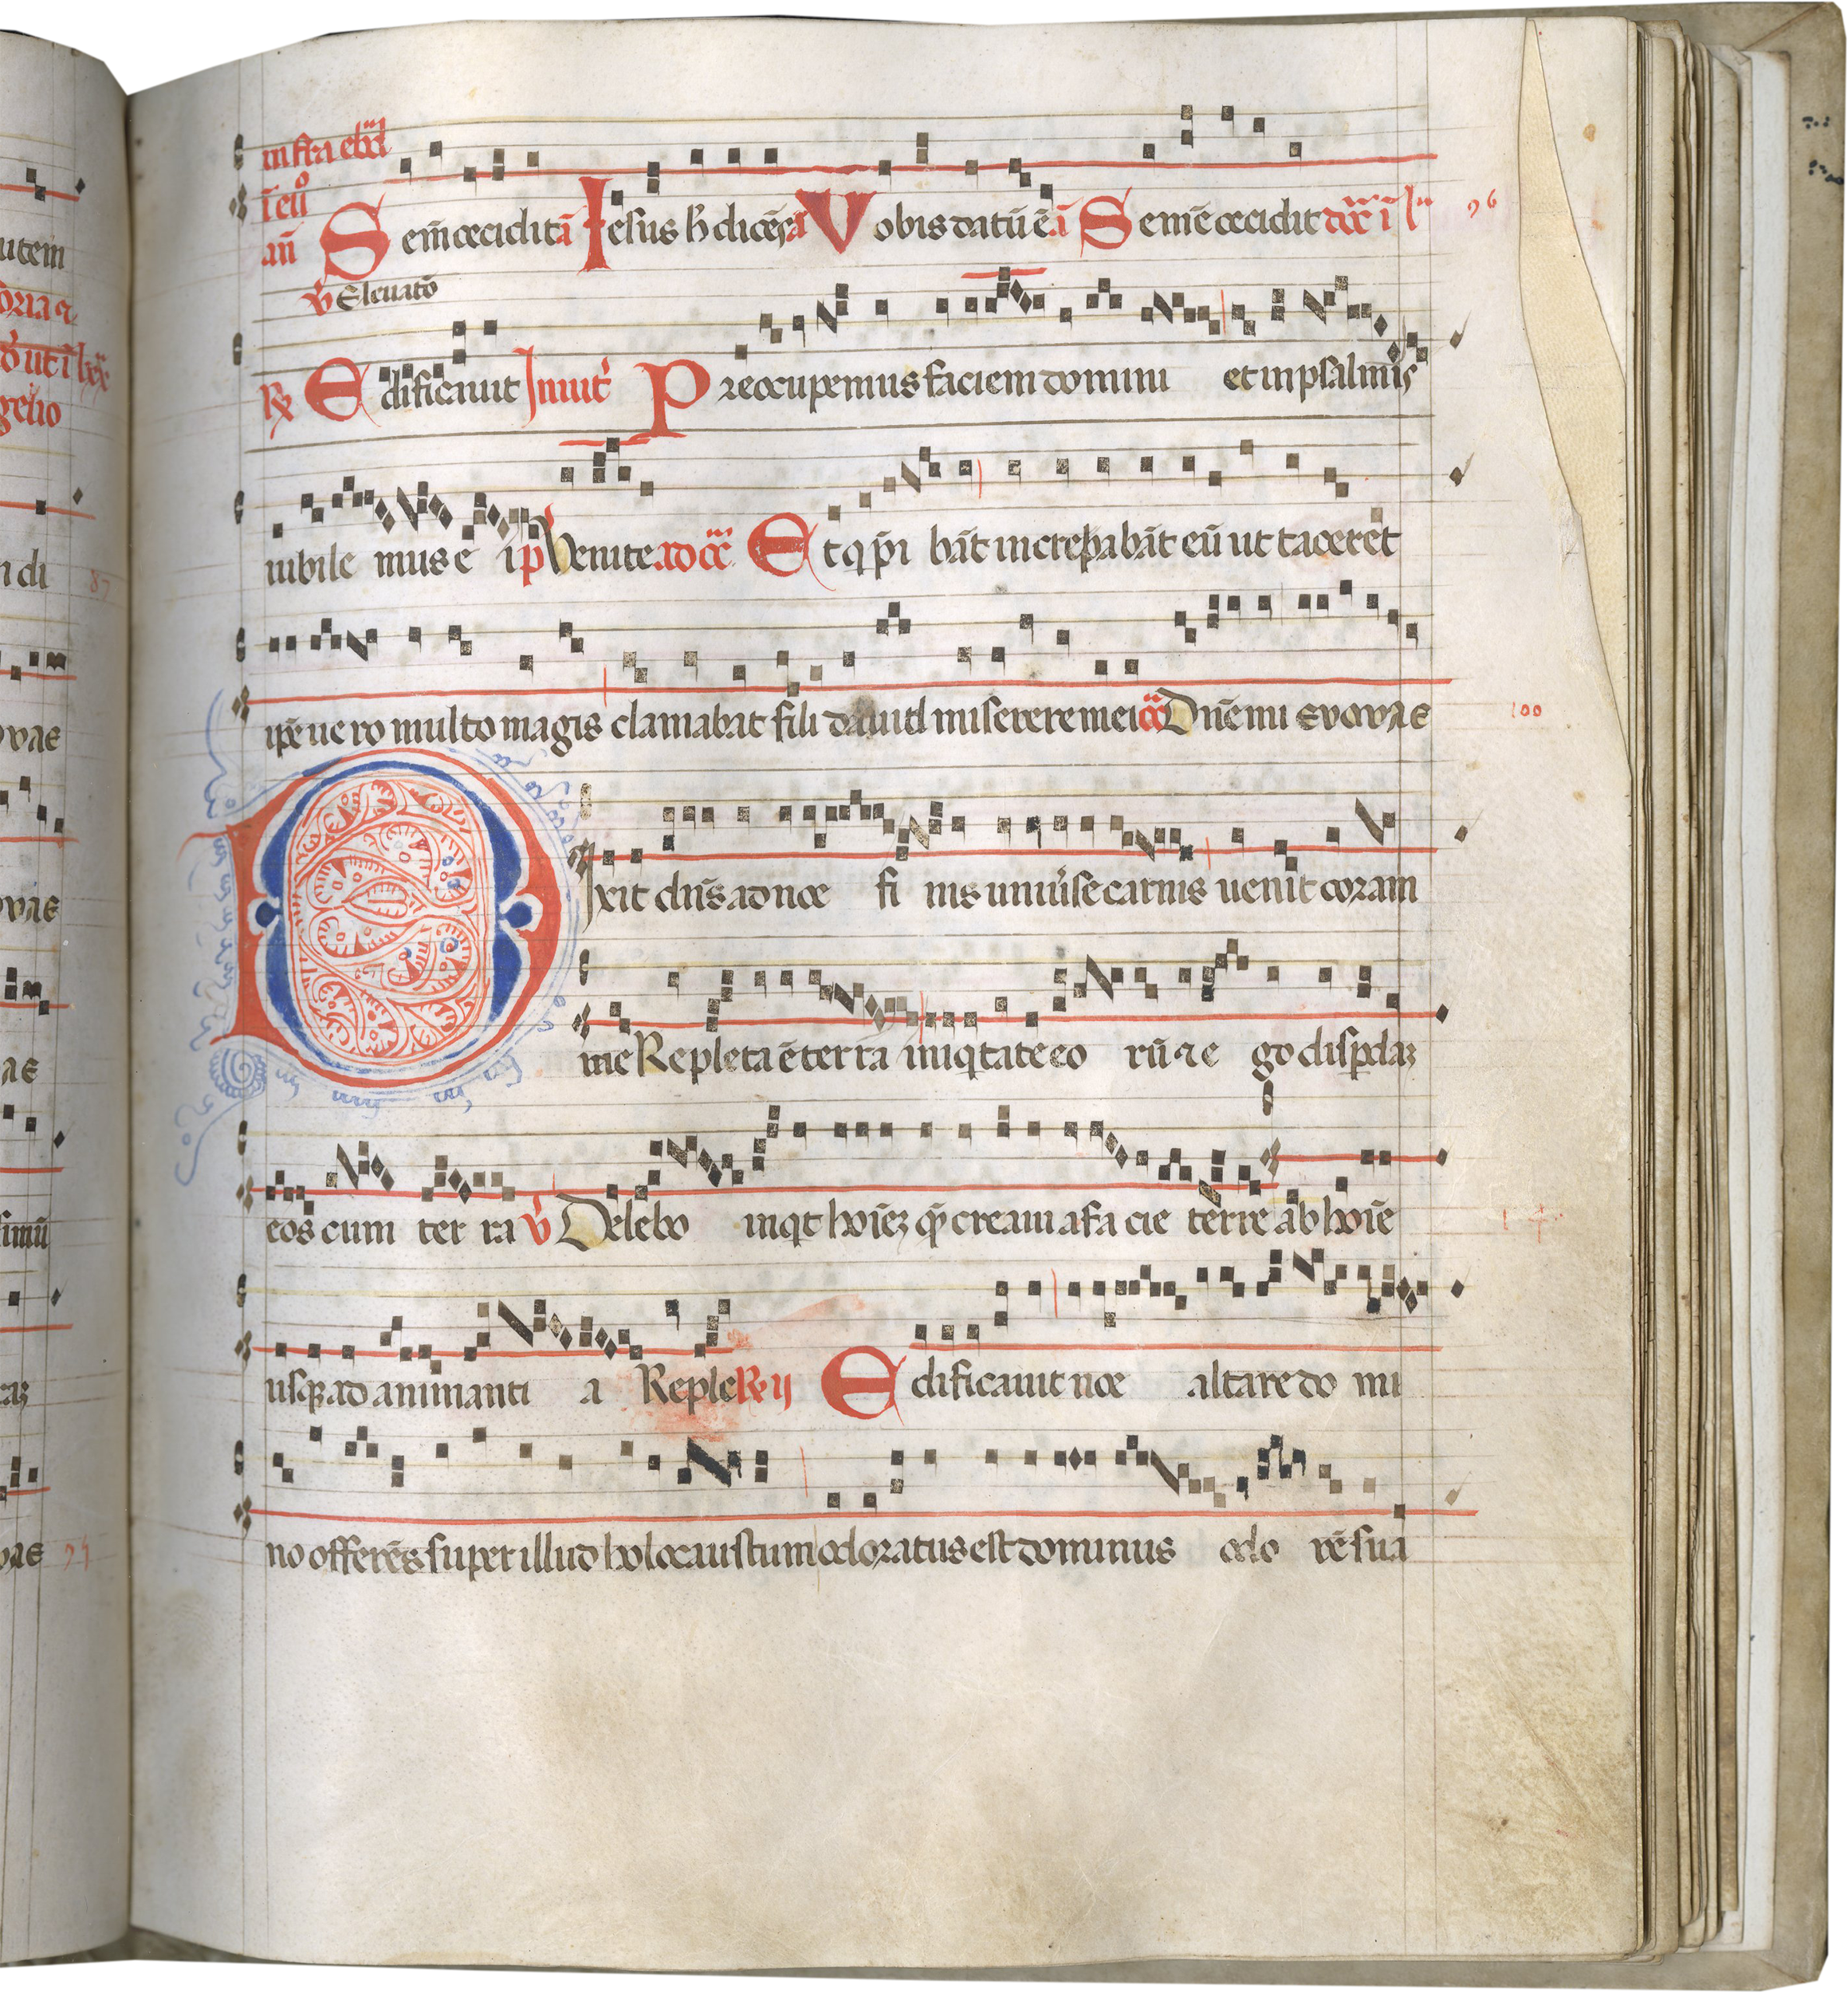 infra ebđ
ī eủ
añ Sem̄ cecidit ā Iesus h̄ dicēs ā Vobis datū ē ī Semē cecidit
96
ꝟ Eleuatō
℞ Edificauit Inuit̉ Preocupemus faciem domini et in psalmis
iubile mus e i p̄ Uenite Et q p̄i bāt increpabāt eū ut taceret
ip̄e uero multo magis clamabat fili dauid miserere mei Dn̄e mi evovae
100
Dixit dn̄s ad noe fi nis uniu̓se carnis uenit coram
me Repleta ē terra iniq̇tate eo rū ⁊ e go disp̱daꝫ
eos cum ter ra ꝟ Delebo inq̇t hoīeꝫ q̄ creaui a fa cie terre ab hoīe
usq̱ ad animanti a Reple ℞ ij Edificauit noe altare do mi
no offerēs super illud holocaustum odoratus est dominus odo rē sua
utem
gelio
ndi
87
ovae
ovae
ae